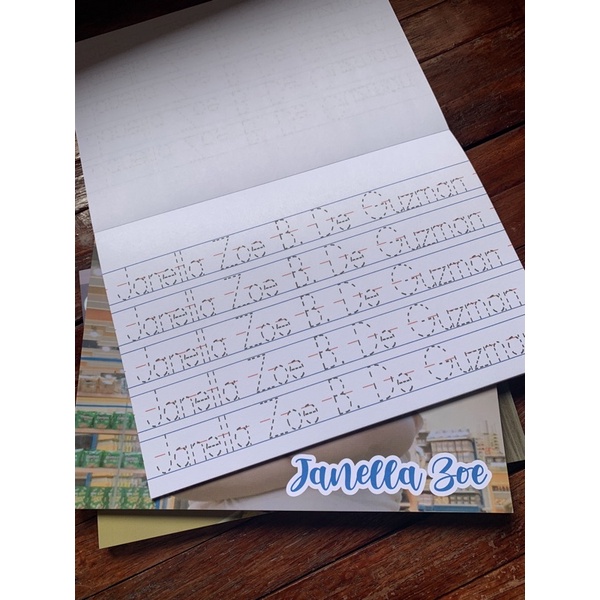 Janella Zoe B. De Guzman
Janella Zoe B. De Guzman
Janella Zoe B. De Guzman
Janella Zoe B. De Guzman
Janella Zoe B. De Guzma
Janella Zoe